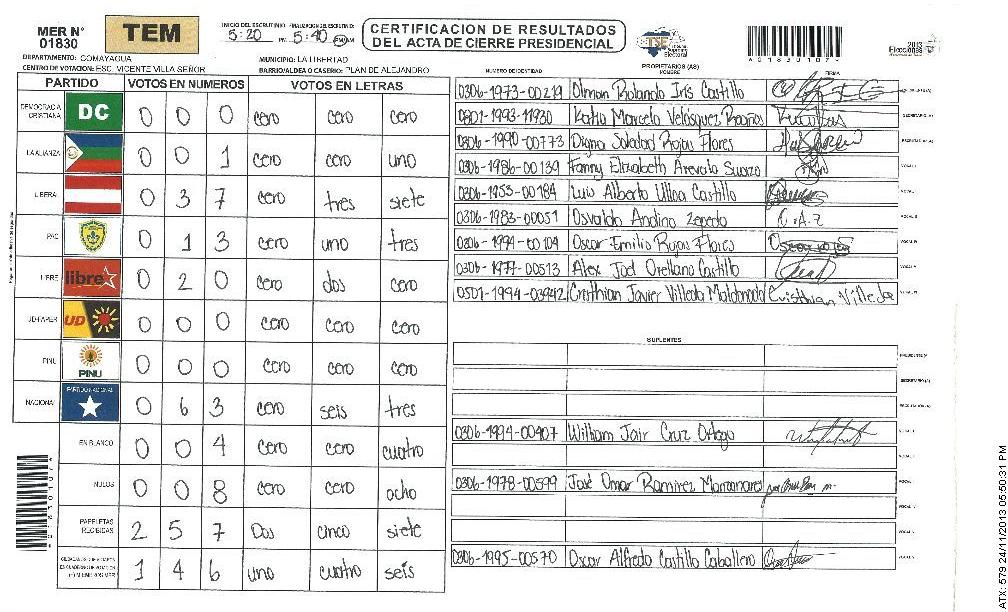 MER N° 01830
TEM
INICIO DEL ESCRUTINIO 5:20 PM
FINALIZACION DEL ESCRUTINIO: 5:40 PM/AM
CERTIFICACION DE RESULTADOS
DEL ACTA DE CIERRE PRESIDENCIAL
TSE Tribunal Supremo Electoral
2013
Elecciones
A01830107A
DEPARTAMENTO: COMAYAGUA
MUNICIPIO: LA LIBERTAD
CENTRO DE VOTACION: ESC. VICENTE VILLA SEÑOR
BARRIO/ALDEA O CASERIO: PLAN DE ALEJANDRO
PARTIDO VOTOS EN NUMEROS VOTOS EN LETRAS
DEMOCRACIA CRISTIANA DC 0 0 0 cero cero cero
LA ALIANZA 0 0 1 cero cero uno
LIBERAL 0 3 7 cero tres siete
PAC 0 1 3 cero uno tres
LIBRE libre 0 2 0 cero dos cero
UD-FAPER UD 0 0 0 cero cero cero
PINU PINU 0 0 0 cero cero cero
NACIONAL PARTIDO NACIONAL 0 6 3 cero seis tres
EN BLANCO 0 0 4 cero cero cuatro
NULOS 0 0 8 cero cero ocho
PAPELETAS RECIBIDAS 2 5 7 Dos cinco siete
1 4 6 uno cuatro seis
NUMERO DE IDENTIDAD PROPIETARIOS (AS) NOMBRE FIRMA
0306-1973-00219 Olman Rolando Iris Castillo
0801-1993-11930 Katia Marcelo Velásquez
0306-1990-00773 Digna Soledad Rojas Flores
0306-1986-00139 Fanny Elizabeth Arevalo Suarzo
0306-1953-00184 Luis Alberto Ulloa Castillo
0306-1983-00051 Osvaldo Andino Zepeda O.A.Z
0306-1994-00104 Oscar Emilio Rojas Flores
0306-1977-00513 Alex Joel Orellana Castillo
0501-1994-03942 Cristhian Javier Villeda Maldonado Cristhian Villeda
SUPLENTES
0306-1994-00407 William Jair Cruz Ortega
0306-1978-00599 José Omar Ramirez Manzanares
0306-1995-00570 Oscar Alfredo Castillo Caballero
ATX: 579 24/11/2013 05:50:31 PM